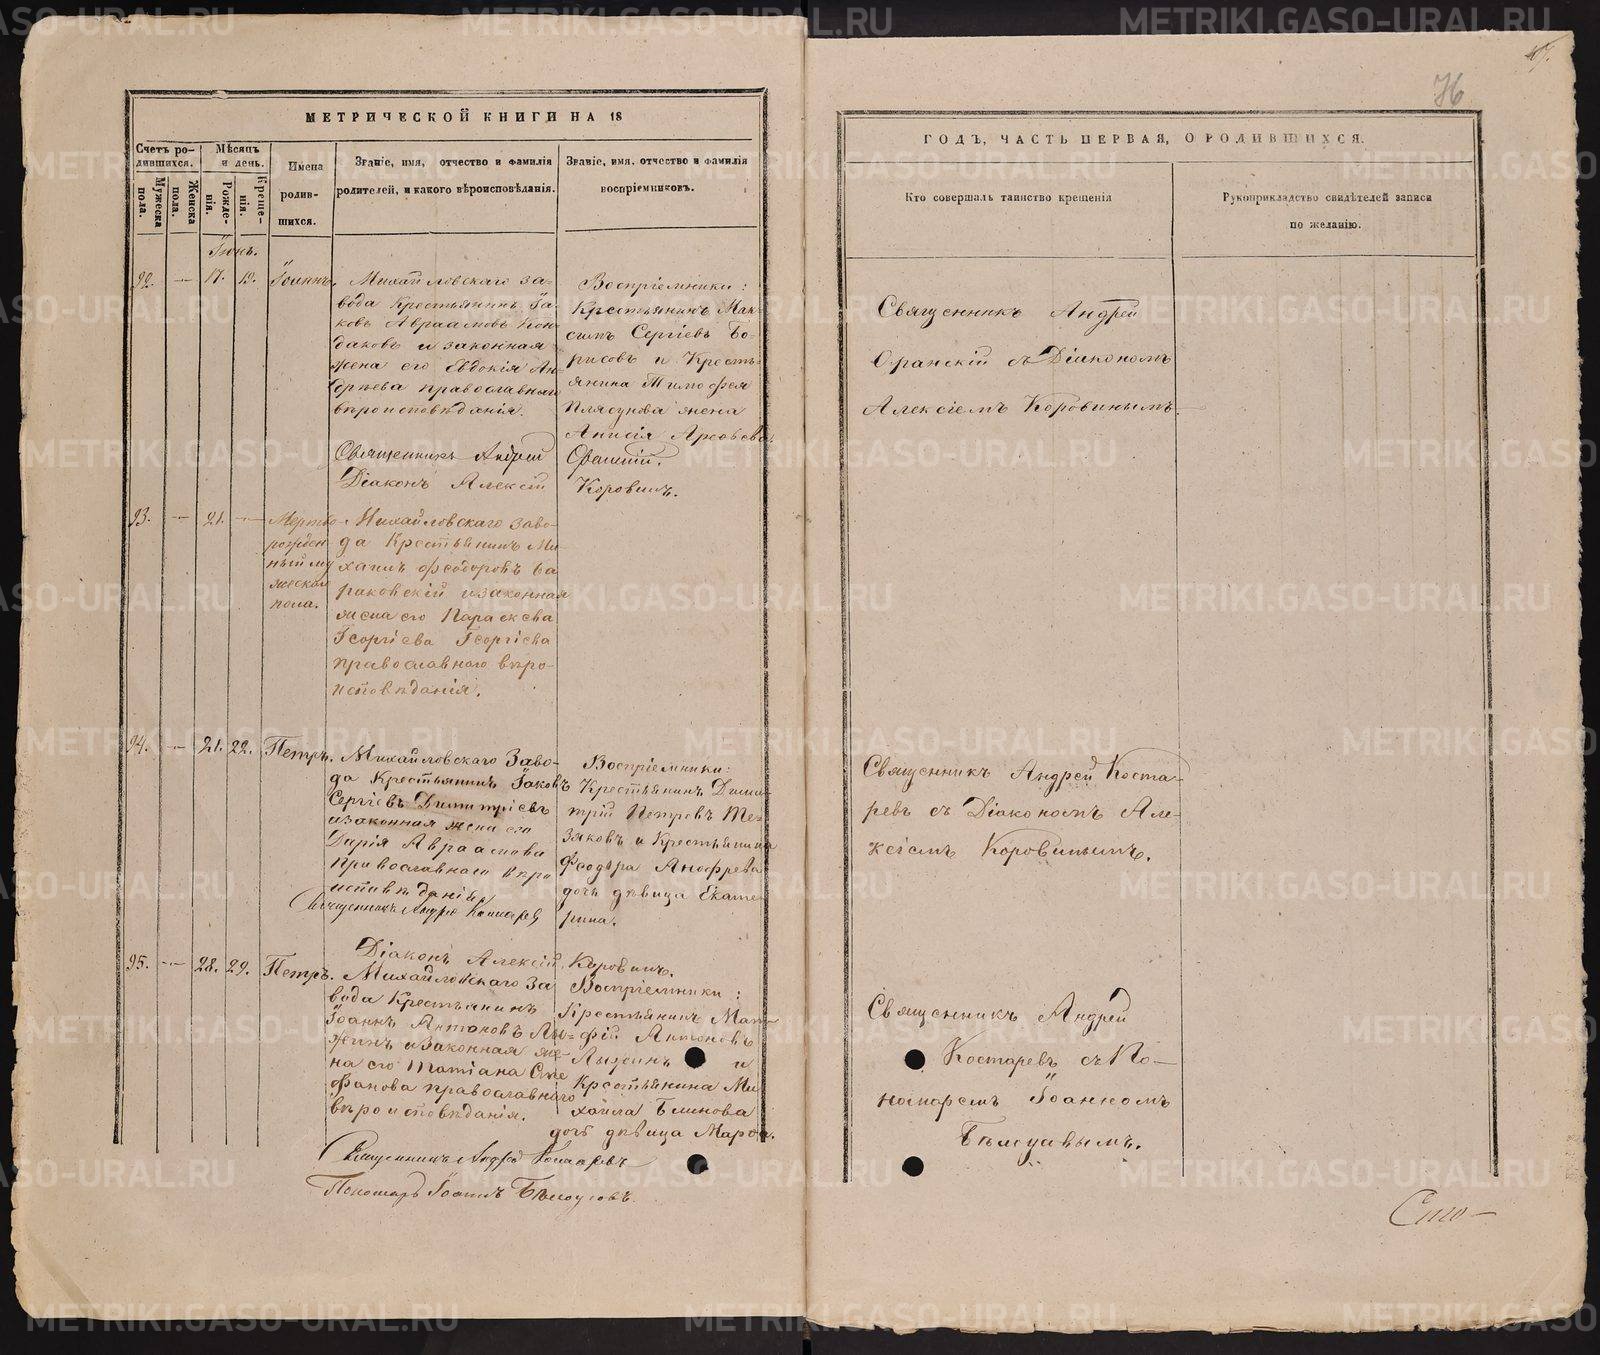 МЕТРИЧЕСКОЙ КНИГИ НА 18
Счетъ ро-
дившихся.
Мужеска
пола.
Женска
пола.
Мѣсяцъ
и день.
Рожде-
нія.
Креще-
нія.
Имена
родив-
шихся.
Званіе, имя, отчество и фамилія
родителей, и какого вѣроисповѣданія.
Званіе, имя, отчество и фамилія
воспріемниковъ.
Іюнь.
92. — 17. 19. Іоаннъ.
Михайловскаго за-
вода Крестьянинъ Іа-
ковъ Авраамовъ Кон
даковъ и законная
жена его Евдокія Ан-
дреева православнаго
вѣроисповѣданія.
Воспріемники:
Крестьянинъ Мак-
симъ Сергіевъ Бо-
рисовъ и Кресть-
янина Тимофея
Плясунова жена
Анисія
Священникъ Андрей Оранскій.
Діаконъ Алексій Коровинъ.
93. — 21. — Мертво
рожден
ный му
жескаго
пола.
Михайловскаго заво-
да Крестьянинъ Ми-
хаилъ Феодоровъ Ба
раковскій и законная
жена его Параскева
Георгіева Георгіева
православнаго вѣро-
исповѣданія.
94. — 21. 22. Петръ.
Михайловскаго Заво-
да Крестьянинъ Іаковъ
Сергіевъ Димитріевъ
и законная жена его
Дарія Авраамова
Православнаго вѣро
исповѣданія.
Воспріемники:
Крестьянинъ Дими-
трій Петровъ
и Крестьянина
Феодора Анофрева
дочь дѣвица Екате-
рина.
Священникъ Андрей Костаревъ
Діаконъ Алексій Коровинъ.
95. — 28. 29. Петръ.
Михайловскаго За
вода Крестьянинъ
Іоаннъ Антоновъ Лы-
жинъ и законная же-
на его Татіана Сте
фанова православнаго
вѣроисповѣданія.
Воспріемники:
Крестьянинъ Мат-
фій Антоновъ
Лыжинъ и
Крестьянина Ми
хаила Блинова
дочь дѣвица Марфа.
Священникъ Андрей Костаревъ
Пономарь Іоаннъ Бѣлоусовъ.
76
ГОДЪ, ЧАСТЬ ПЕРВАЯ, О РОДИВШИХСЯ.
Кто совершалъ таинство крещенія
Рукоприкладство свидѣтелей записи
по желанію.
Священникъ Андрей
Оранскій съ Діакономъ
Алексіемъ Коровинымъ.
Священникъ Андрей Коста-
ревъ съ Діакономъ Але-
ксіемъ Коровинымъ.
Священникъ Андрей
Костаревъ съ По-
номаремъ Іоанномъ
METRIKI.GASO-URAL.RU